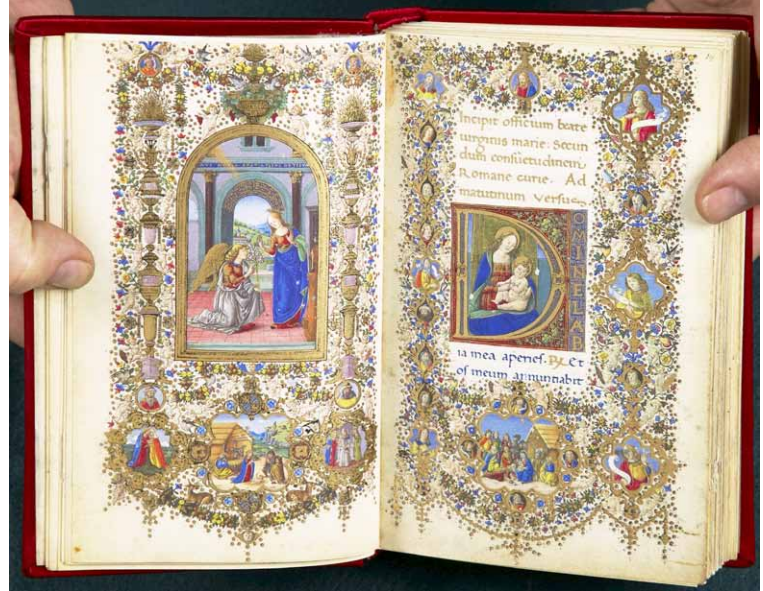 Incipit officium beate
uirginis marie. Secun
dum consuetudinem
Romane curie. Ad
matutinum versus
DOMINE LAB
ia mea aperies. R. Et
os meum annuntiabit